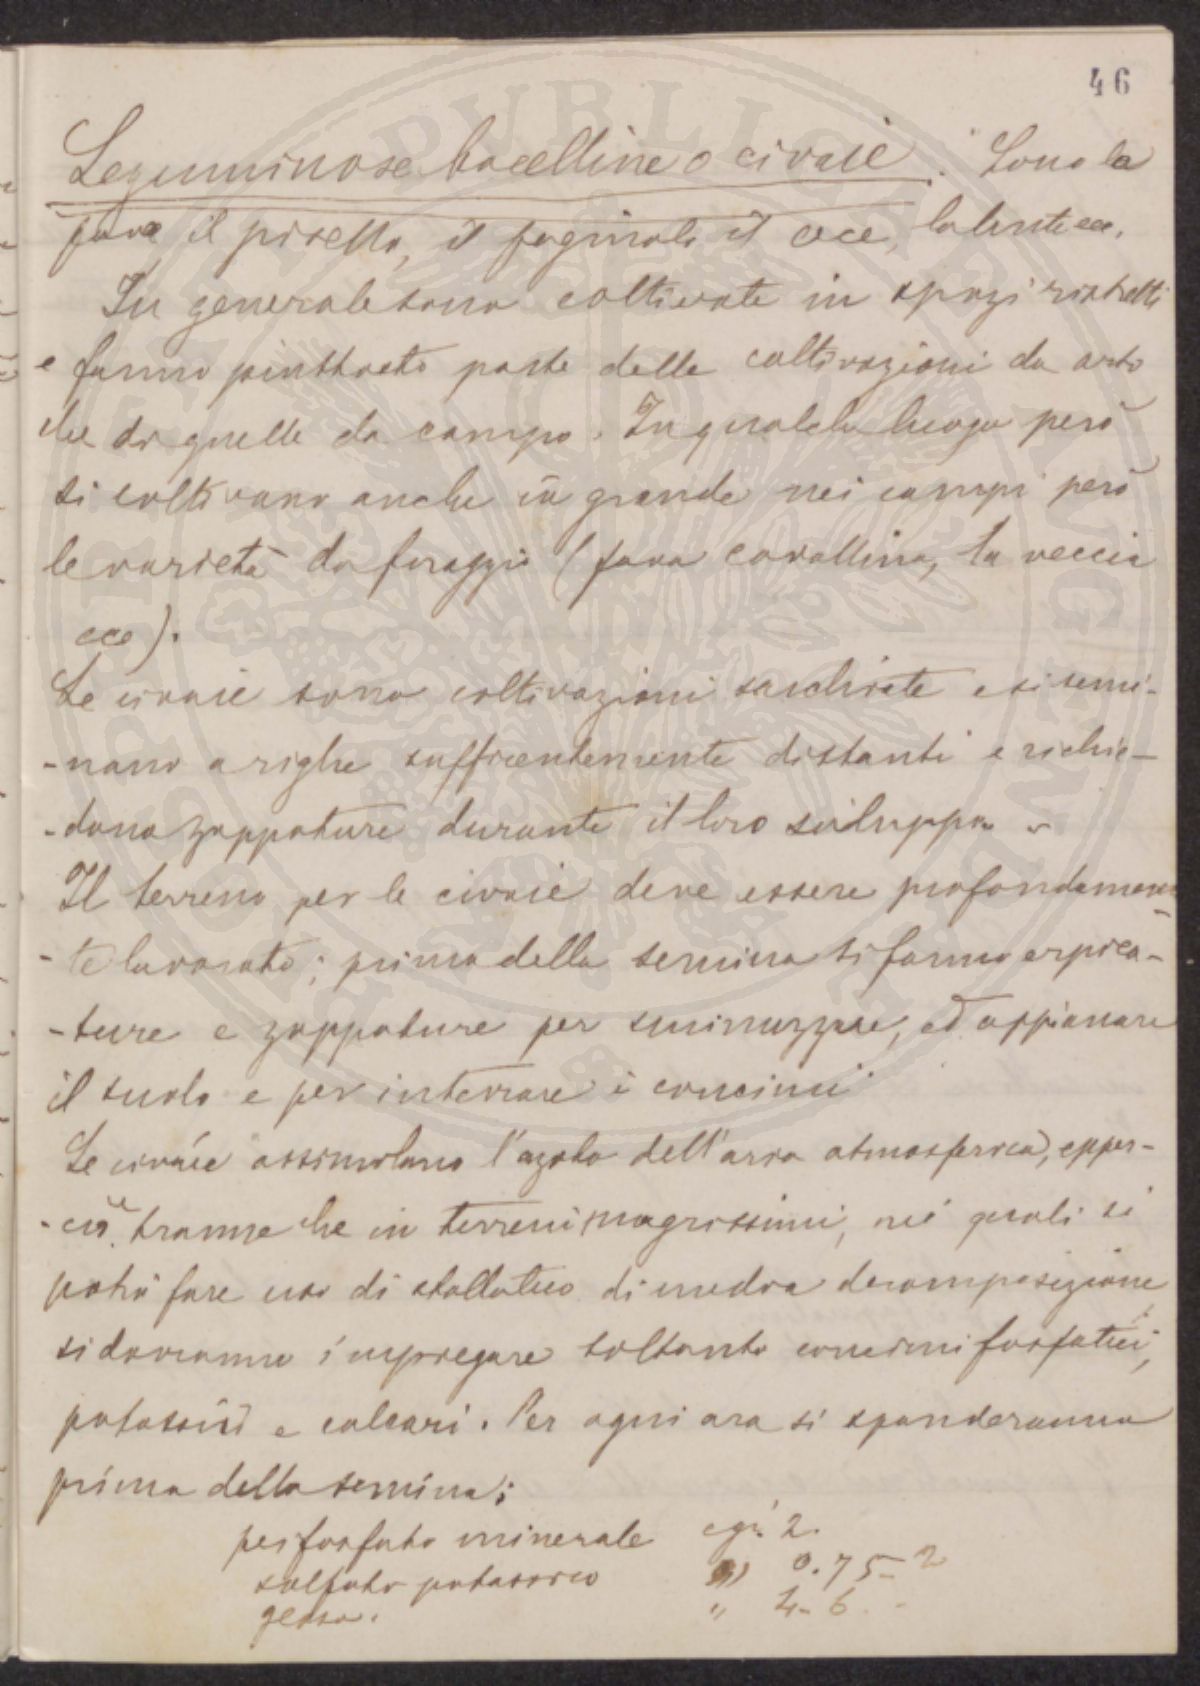 46
Leguminose bacelline o civaie. Sono la
fava, il pisello, il fagiuolo, il cece, la lente ecc.
In generale sono coltivate in spazi ristretti
e fanno piuttosto parte delle coltivazioni da orto
che di quelle da campo. In qualche luogo però
si coltivano anche in grande nei campi però
le varietà da foraggio (fava cavallina, la veccia
ecc).
Le civaie sono coltivazioni sarchiate e si semi-
-nano a righe sufficentemente distanti e richie-
-dono zappature durante il loro sviluppo.
Il terreno per le civaie deve essere profondamen
-te lavorato; prima della semina si fanno erpica-
-ture e zappature per sminuzzare, ed appianare
il suolo e per interrare i concimi
Le civaie assimilano l'azoto dell'aria atmosferica, epper-
-ciò tranne che in terreni magrissimi, nei quali si
potrà fare uso di stallatico di media decomposizione,
si dovranno impiegare soltanto concimi fosfatici,
potassici e calcari. Per ogni ara si spanderanno
prima della semina:
perfosfato minerale cgr. 2.
solfato potassico " 0.75-2
gesso. " 4-6
PUBLICVM